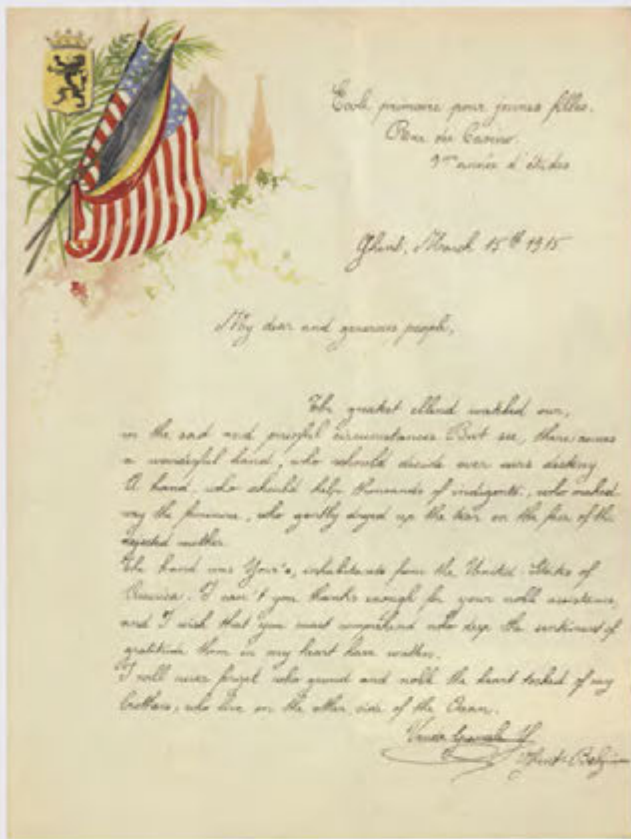 École primaire pour jeunes filles.
Rue du Casino.
3me année d'études
Ghent, March 15th 1915
My dear and generous people,
The greatest ellend watched our,
in the sad and painful circumstances. But see, there comes
a wonderful hand, who should decide over ours destiny.
A hand, who should help thousands of indigents, who maked
way the famine, who gently dryed up the tear on the face of the
dejected mother.
The hand was Your's, inhabitants from the United-States of
America. I can't you thanks enough for your noble assistance,
and I wish that you must comprehend how deep the sentiment of
gratitude them in my heart have written.
I will never forget who grand and noble the heart tocked of my
brothers, who live on the other side of the Ocean.
Ghent-Belgium